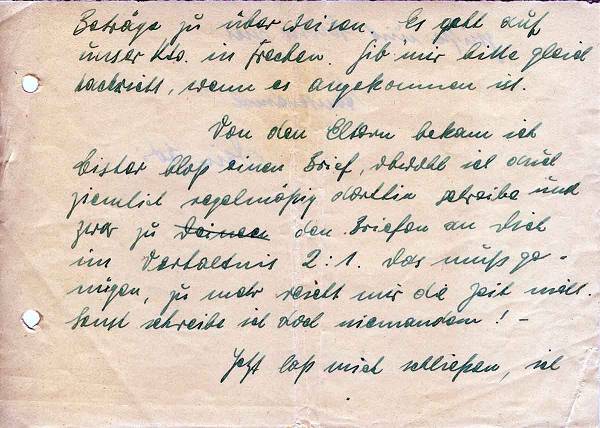 Beträge zu überweisen. Es geht auf
unser Kto. in Frechen. Gib mir bitte gleich
Nachricht, wenn es angekommen ist.
Von den Eltern bekam ich
bisher bloß einen Brief, obwohl ich auch
ziemlich regelmäßig dorthin schreibe und
zwar zu Deinen den Briefen an Dich
im Verhältnis 2:1. Das muß ge-
nügen, zu mehr reicht mir die Zeit nicht.
Sonst schreibe ich doch niemandem! -
Jetzt laß mich schließen, ich